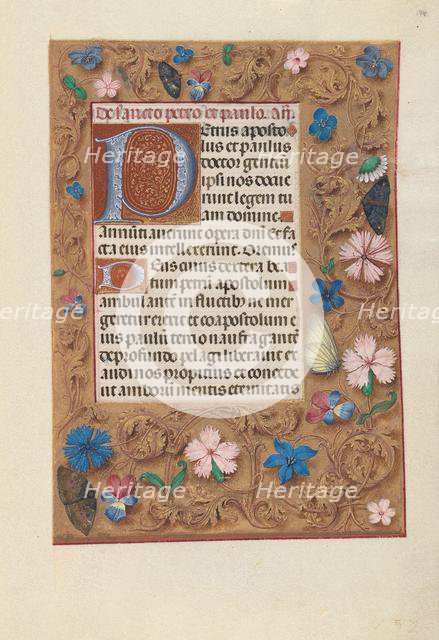 De sancto petro et paulo. añ.
Petrus aposto
lus et paulus
doctor gentiũ
ipsi nos docue
runt legem tu
am domine.
Annũtiauerunt opera dm̃ Et fa
cta eius intellexerunt. Oremus
Deus cuius dextera bea
tum petrũ apostolum
ambulantẽ in fluctibus ne mer
geret erexit et coapostolum e
ius paulũ tertio naufragantẽ
de profundo pelagi liberauit ex
audi nos propitius et concede
ut amborũ meritis eternitatis
Heritage
Heritage
Heritage
Heritage
Heritage
Heritage